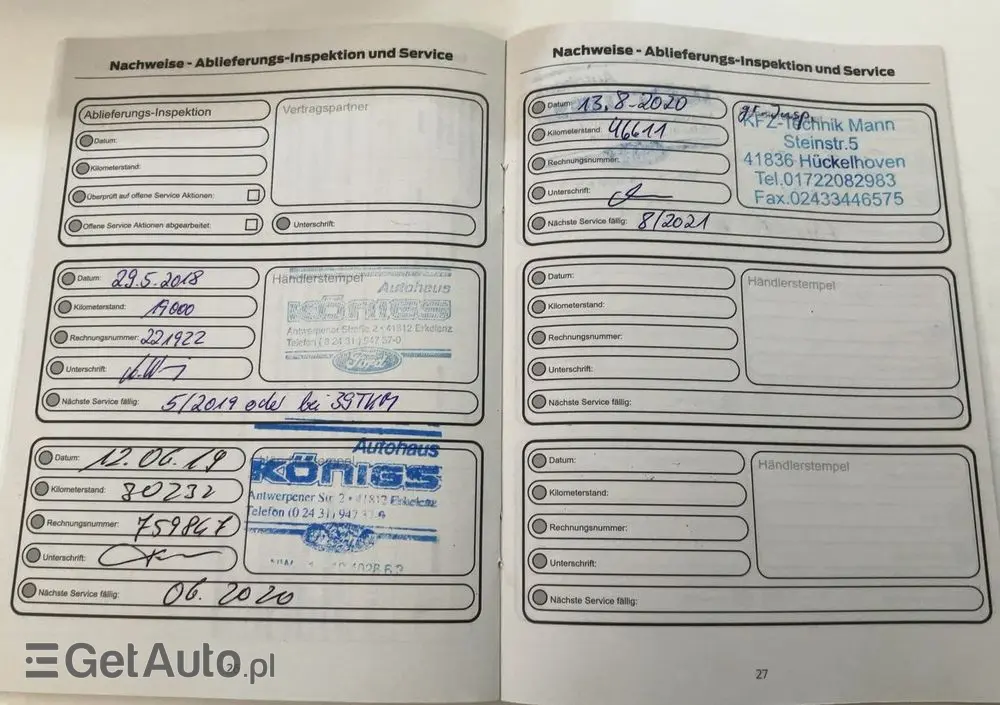 Nachweise - Ablieferungs-Inspektion und Service
Ablieferungs-Inspektion
Vertragspartner
Datum:
Kilometerstand:
Überprüft auf offene Service Aktionen:
Offene Service Aktionen abgearbeitet:
Unterschrift:
Datum: 29.5.2018
Kilometerstand: 19000
Rechnungsnummer: 221922
Unterschrift:
Nächste Service fällig: 5/2019 oder bei 39TKM
Händlerstempel
Autohaus
KÖNIGS
Antwerpener Straße 2 • 41812 Erkelenz
Telefon (0 24 31) 947 57-0
Ford
Datum: 12.06.19
Kilometerstand: 30232
Rechnungsnummer: 759847
Unterschrift:
Nächste Service fällig: 06. 2020
Autohaus
KÖNIGS
Antwerpener Str. 2 • 41812 Erkelenz
Telefon (0 24 31) 947
GetAuto.pl
Nachweise - Ablieferungs-Inspektion und Service
Datum: 13.8-2020
Kilometerstand: 46611
Rechnungsnummer:
Unterschrift:
Nächste Service fällig: 8/2021
gr. Insp.
KFZ-Technik Mann
Steinstr.5
41836 Hückelhoven
Tel.01722082983
Fax.02433446575
Datum:
Kilometerstand:
Rechnungsnummer:
Unterschrift:
Nächste Service fällig:
Händlerstempel
Datum:
Kilometerstand:
Rechnungsnummer:
Unterschrift:
Nächste Service fällig:
Händlerstempel
27